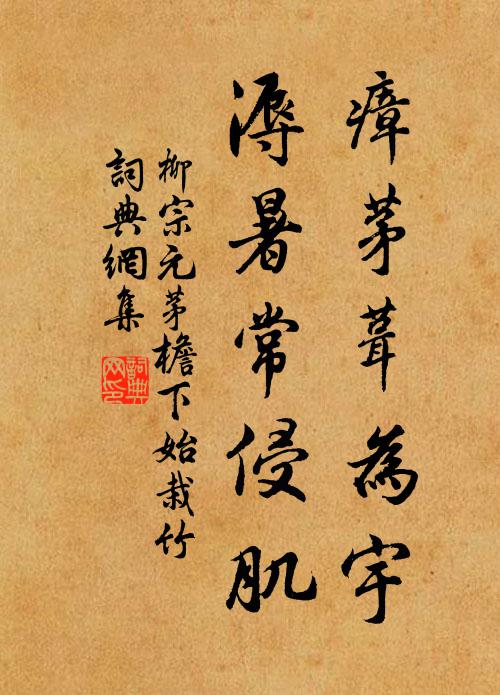 瘴茅葺為宇
溽暑常侵肌
柳宗元茅檐下始栽竹
詞典網集
詞典網印